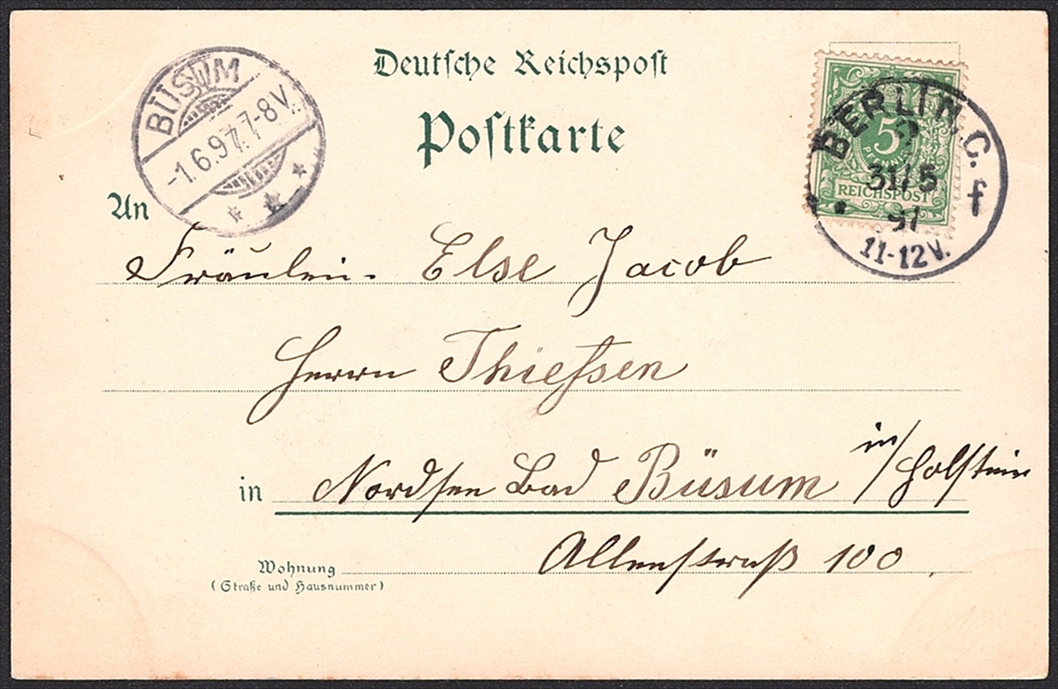 Deutsche Reichspost
Postkarte
BÜSUM
-1.6.97. 7-8V.
5
PFENNIG
REICHSPOST
BERLIN, C.
2
31/5
97
11-12V.
f
An
Fräulein. Else Jacob
Herrn Thießen
in Nordsee Bad Büsum in/Holstein
Wohnung Alleestraß 100.
(Straße und Hausnummer)